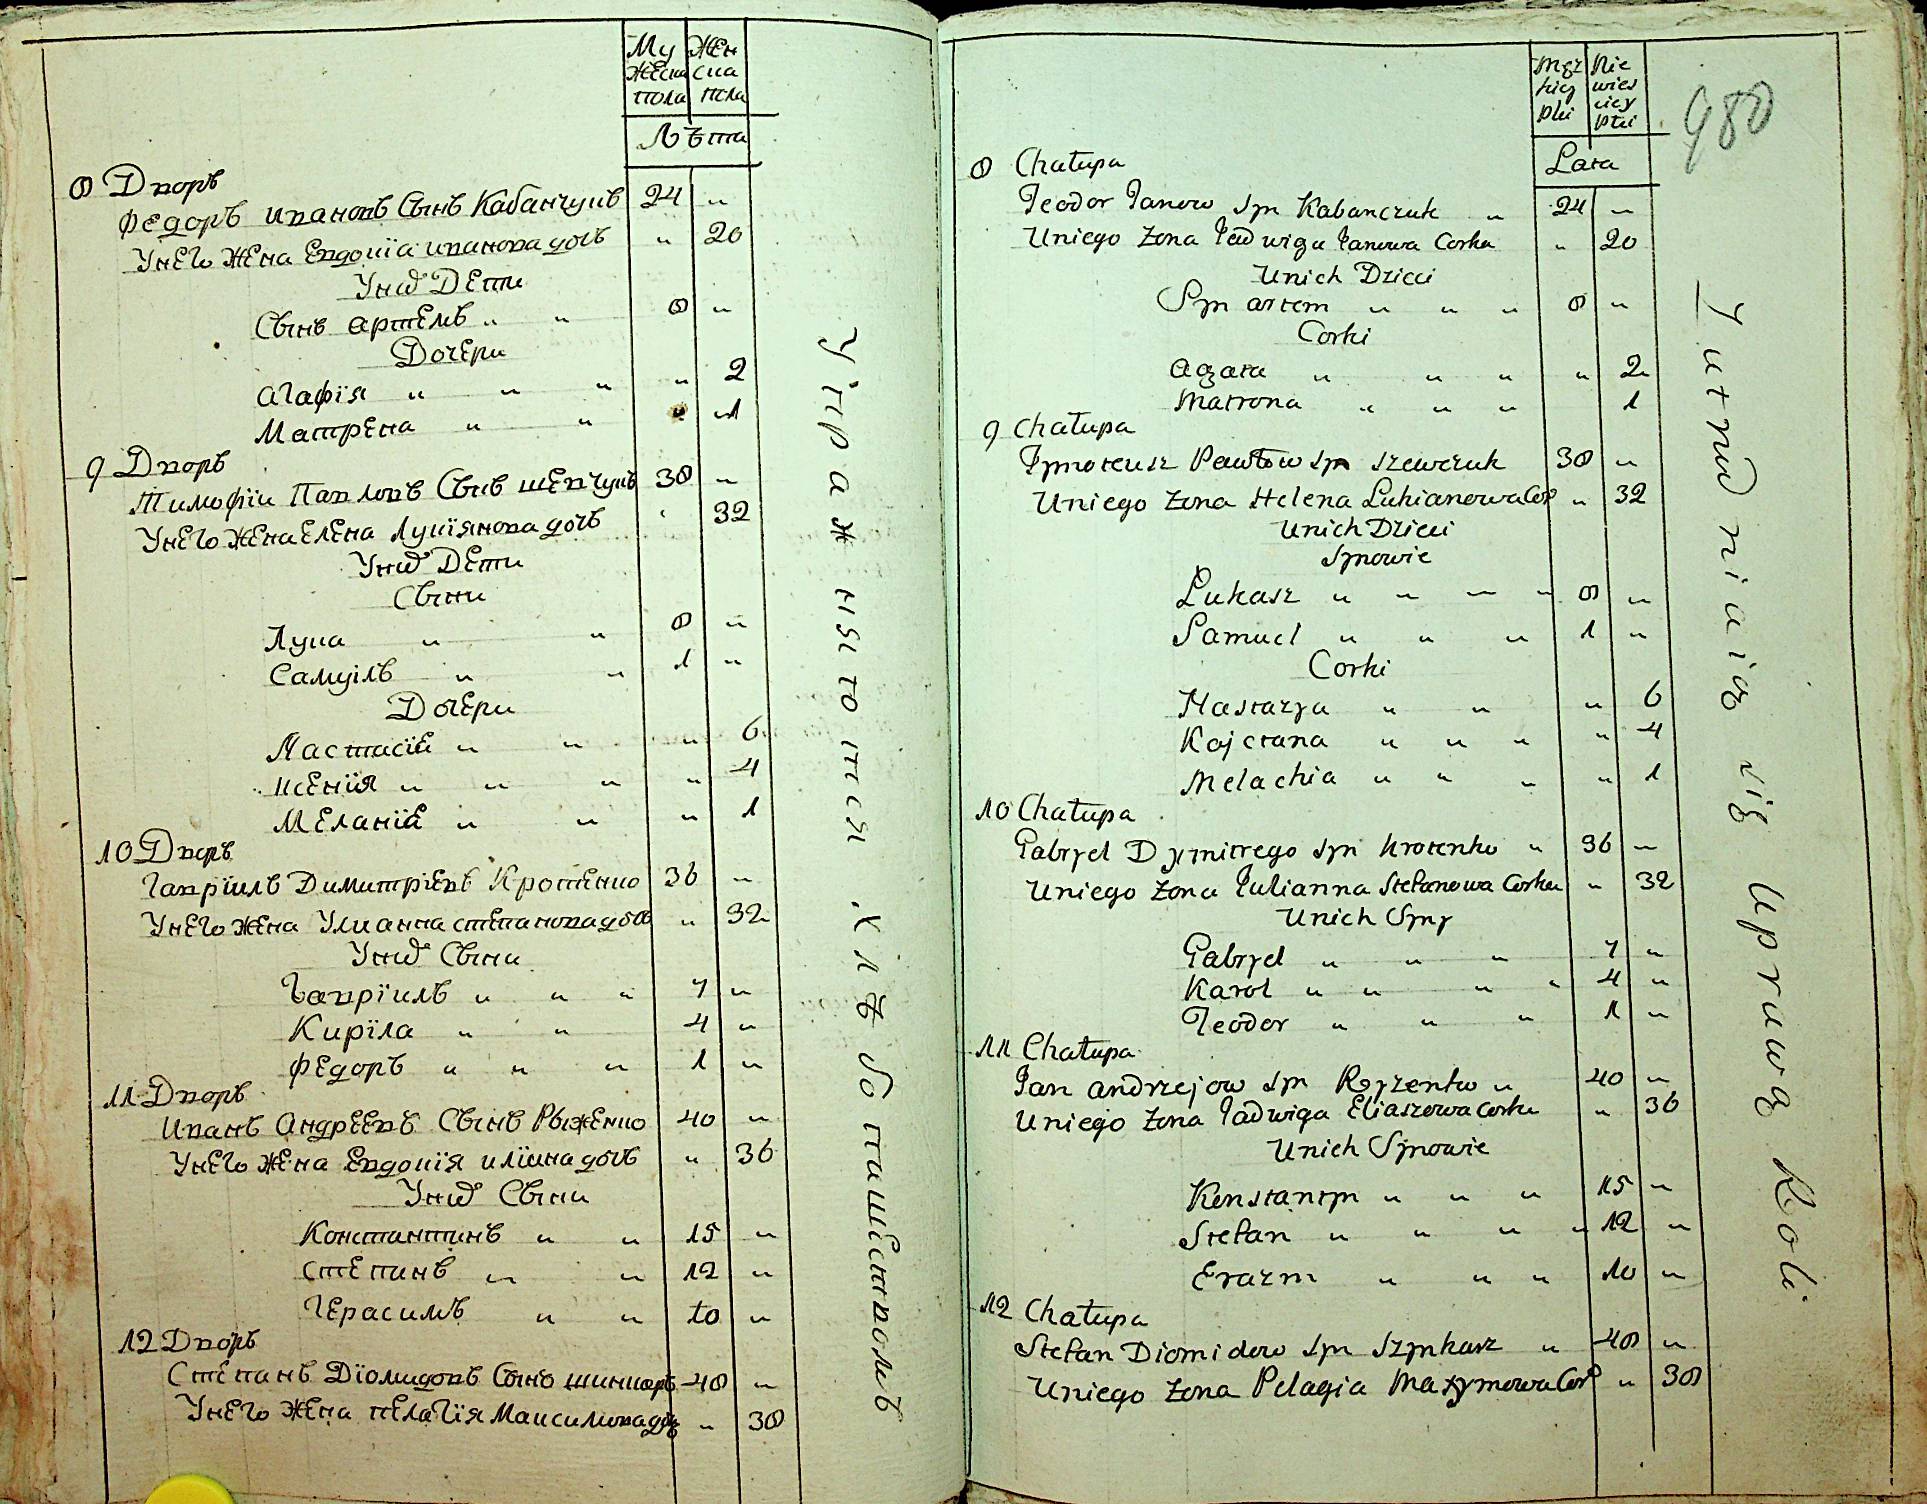 Му Жен
жеска ска
пола пола
Лѣта
8 Дворъ
Федоръ Ивановъ Сынъ Кабанчукъ 24 „
Унего Жена Евдокїа Иванова дочь „ 20
Уних Дети
Сынъ Артемъ „ „ 8 „
Дочери
Агафїя „ „ „ „ 2
Матрена „ „ „ „1
9 Дворъ
Тимофїи Павловъ Сынъ Шевчукъ 38 „
Унего Жена Елена Лукїянова дочь „ 32
Уних Дети
Сыни
Лука „ „ 8 „
Самуілъ „ „ 1 „
Дочери
Настасїѣ „ „ „ 6
Ксенїя „ „ „ „ 4
Меланїѣ „ „ „ 1
10 Дворъ
Гаврїилъ Димитрїевъ Кротенко 36 „
Унего жена Улианна Степанова дочь „ 32
Уних Сыни
Гаврїилъ „ „ „ 7 „
Кирїла „ „ 4 „
Федоръ „ „ „ 1 „
11 Дворъ
Иванъ Андреевъ Сынъ Рыженко 40 „
Унего жена Евдокїя Илїина дочь „ 36
Уних Сыни
Константинъ „ „ 15 „
Степинъ „ „ 12 „
Герасимъ „ „ 10 „
12 Дворъ
Степанъ Дїомидовъ Сынъ Шинкаръ 48 „
Унего жена Пелагїя Максимова дочь „ 38
Упражняются Хлѣбопашественномъ
980
Męz Nie
kiey wies
płci ciey
płci
Lata
8 Chałupa
Teodor Janow syn Kabanczuk „ 24 „
Uniego Zona Jadwiga Janowa Corka „ 20
Unich Dzieci
Syn Artem „ „ „ 8 „
Corki
Agata „ „ „ „ 2
Matrona „ „ „ 1
9 Chałupa
Tymoteusz Pawłow syn Szewczuk 38 „
Uniego Zona Helena Lukianowa Cor „ 32
Unich Dzieci
Synowie
Łukasz „ „ „ „ 8 „
Samuel „ „ „ 1 „
Corki
Nastazya „ „ „ 6
Kajetana „ „ „ „ 4
Melachia „ „ „ „ 1
10 Chałupa
Gabryel Dymitrego syn Krotenko „ 36 „
Uniego Zona Julianna Stefanowa Corka „ 32
Unich Syny
Gabryel „ „ „ 7 „
Karol „ „ „ „ 4 „
Teodor „ „ „ 1 „
11 Chałupa
Jan Andrzejow syn Ryzenko „ 40 „
Uniego Zona Jadwiga Eliaszowa Corka „ 36
Unich Synowie
Konstantyn „ „ „ 15 „
Stefan „ „ „ „ 12 „
Erazm „ „ „ 10 „
12 Chałupa
Stefan Diomidow syn Szynkarz „ 48 „
Uniego Zona Pelagia Maxymowa Cor „ 38
Zatrudniaią się Uprawą Roli